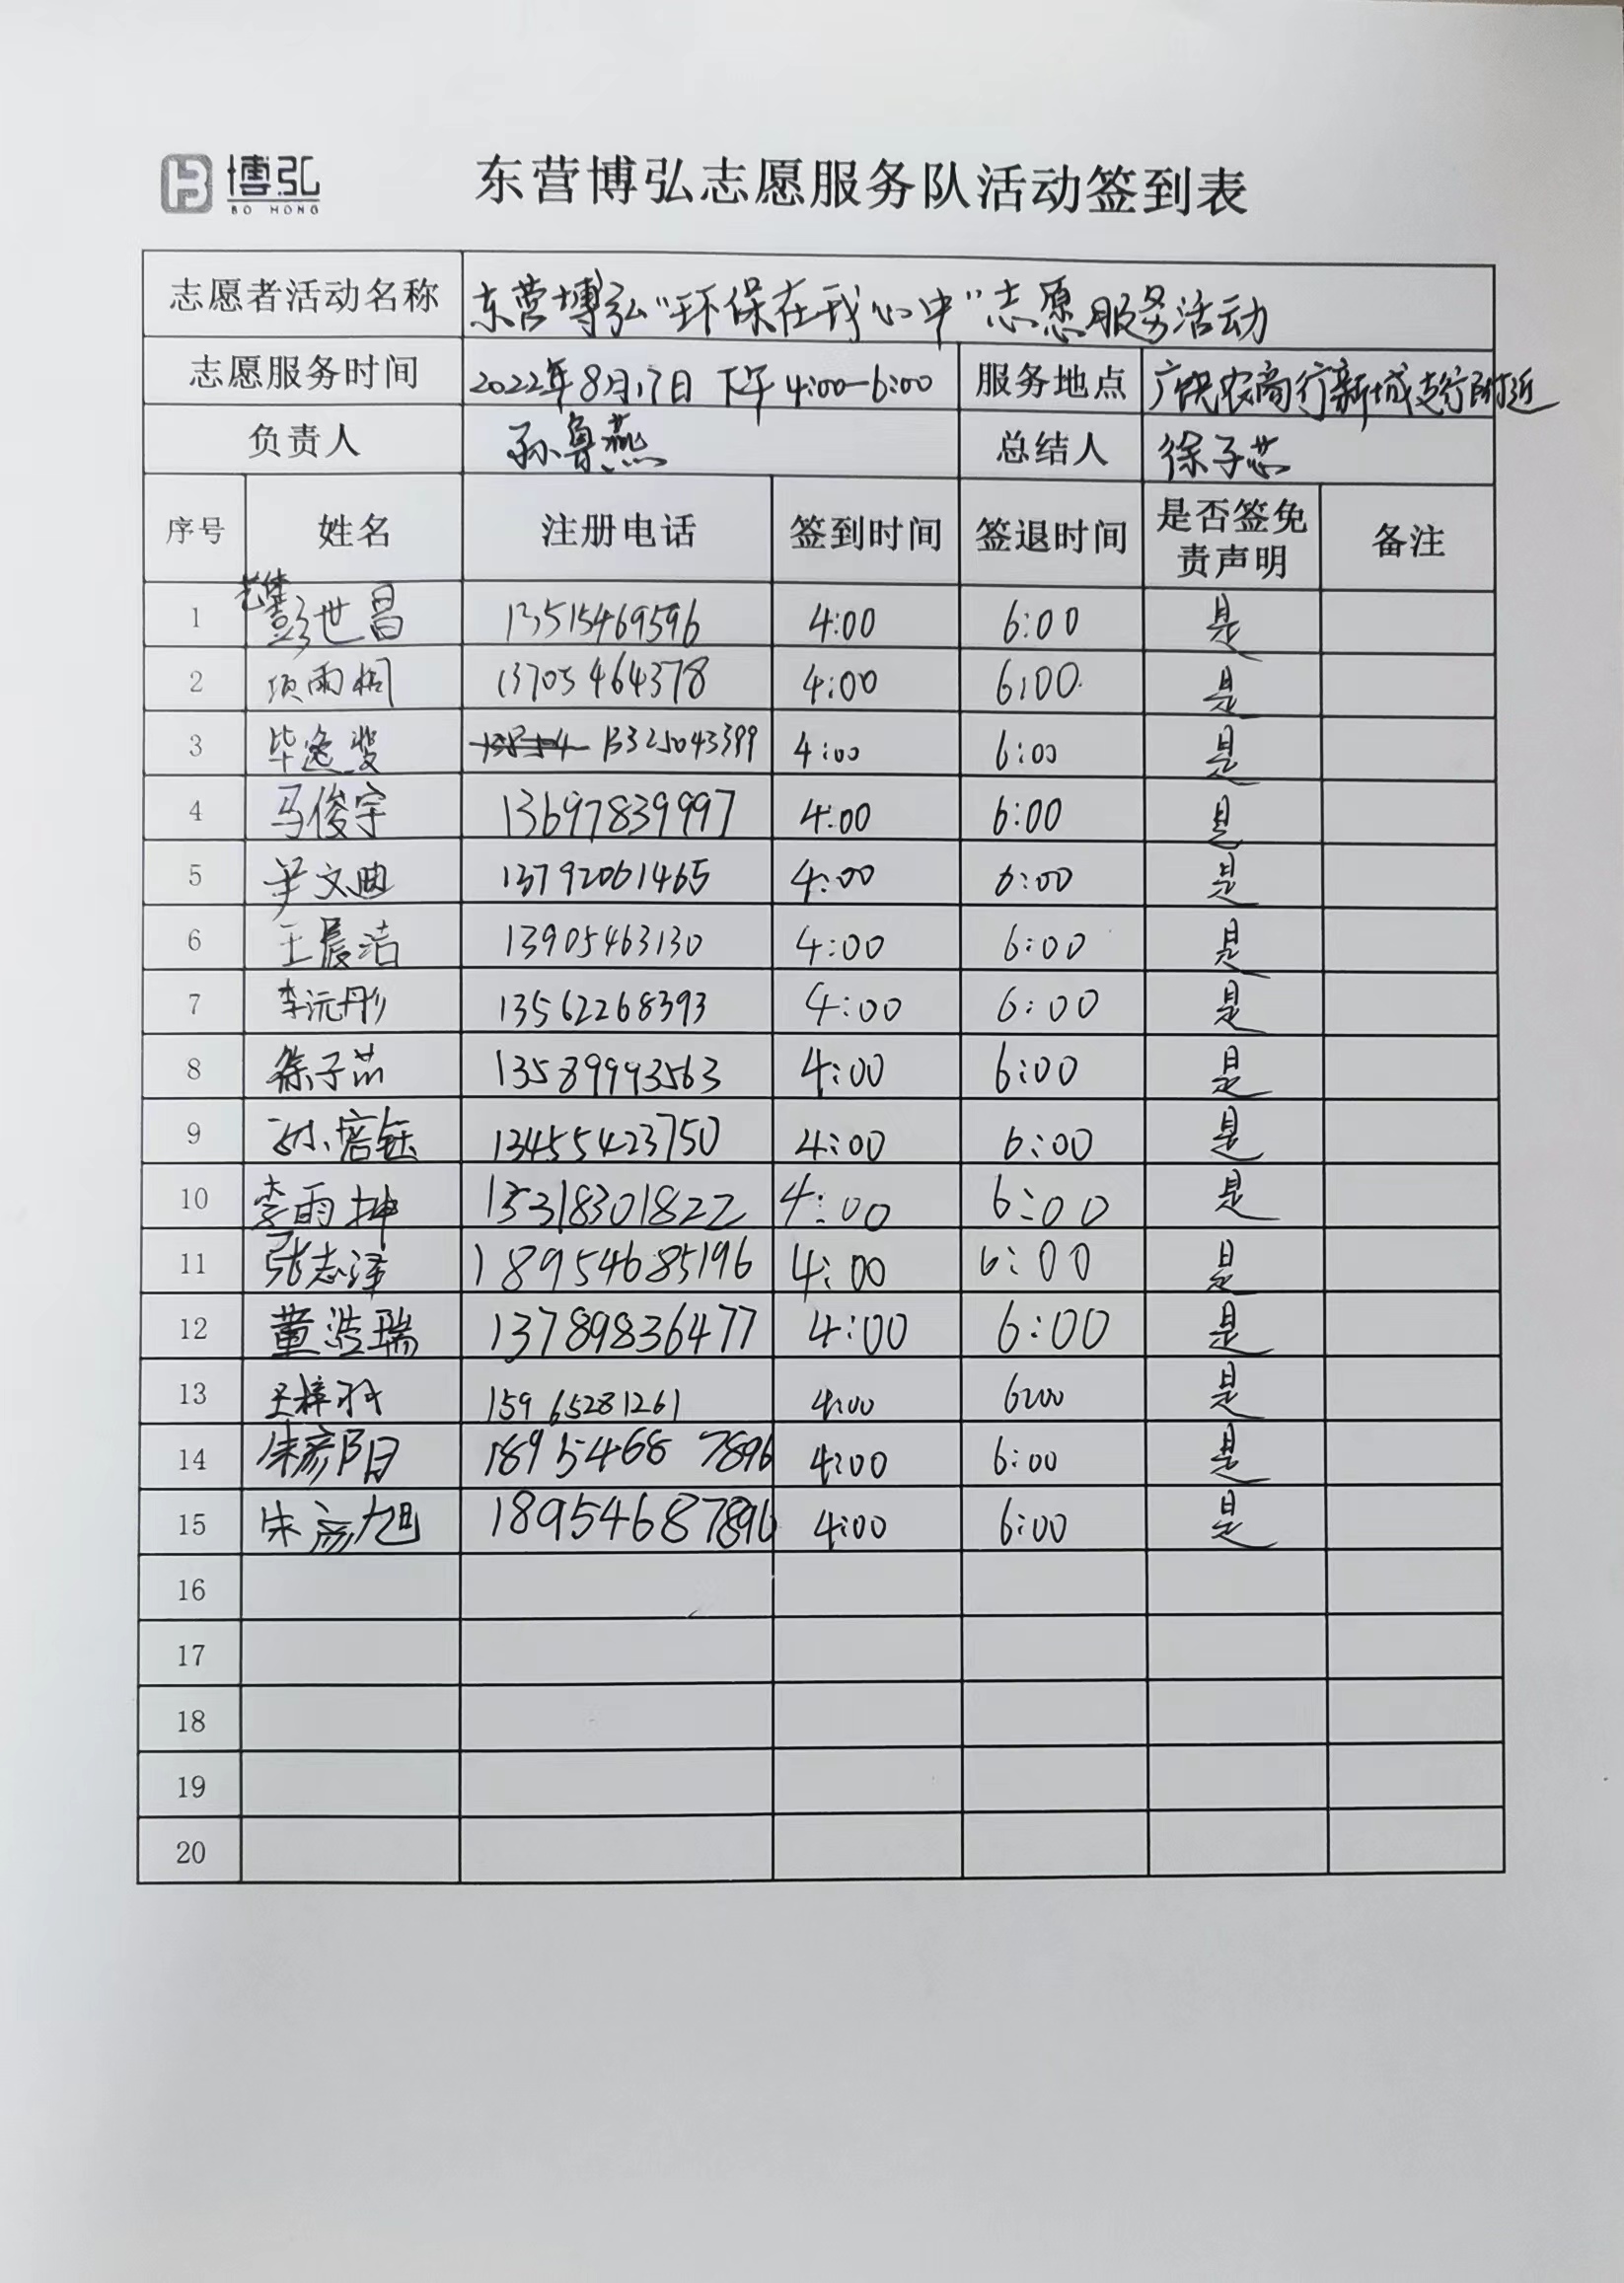 博弘
BO HONG
东营博弘志愿服务队活动签到表
志愿者活动名称 东营博弘“环保在我心中”志愿服务活动
志愿服务时间 2022年8月17日 下午 4:00-6:00 服务地点 广饶农商行新城支行附近
负责人 孙鲁燕 总结人 徐子芯
序号 姓名 注册电话 签到时间 签退时间 是否签免责声明 备注
1 彭世昌 13515469596 4:00 6:00 是
2 项雨桐 13705464378 4:00 6:00 是
3 毕逸斐 13325043399 4:00 6:00 是
4 马俊宇 13697839997 4:00 6:00 是
5 尹文迪 13792061465 4:00 6:00 是
6 王晨洁 13905463130 4:00 6:00 是
7 李沅彤 13562268393 4:00 6:00 是
8 徐子芯 13589993563 4:00 6:00 是
9 13455423750 4:00 6:00 是
10 李雨坤 15318301822 4:00 6:00 是
11 张志泽 18954685196 4:00 6:00 是
12 董浩瑞 13789836477 4:00 6:00 是
13 王梓 15965281261 4:00 6:00 是
14 朱彦阳 18954687896 4:00 6:00 是
15 朱彦旭 18954687896 4:00 6:00 是
16
17
18
19
20